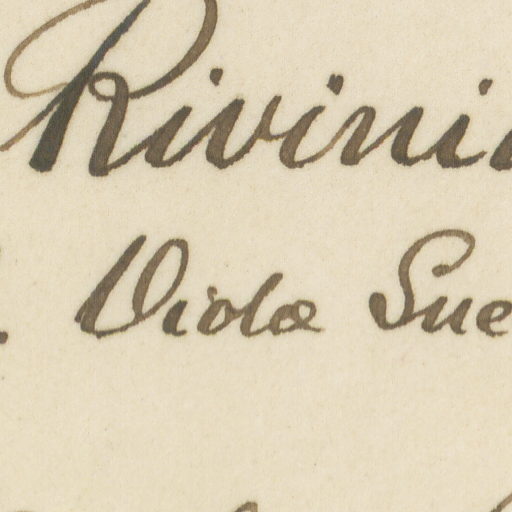 Rivini
Violæ Sue